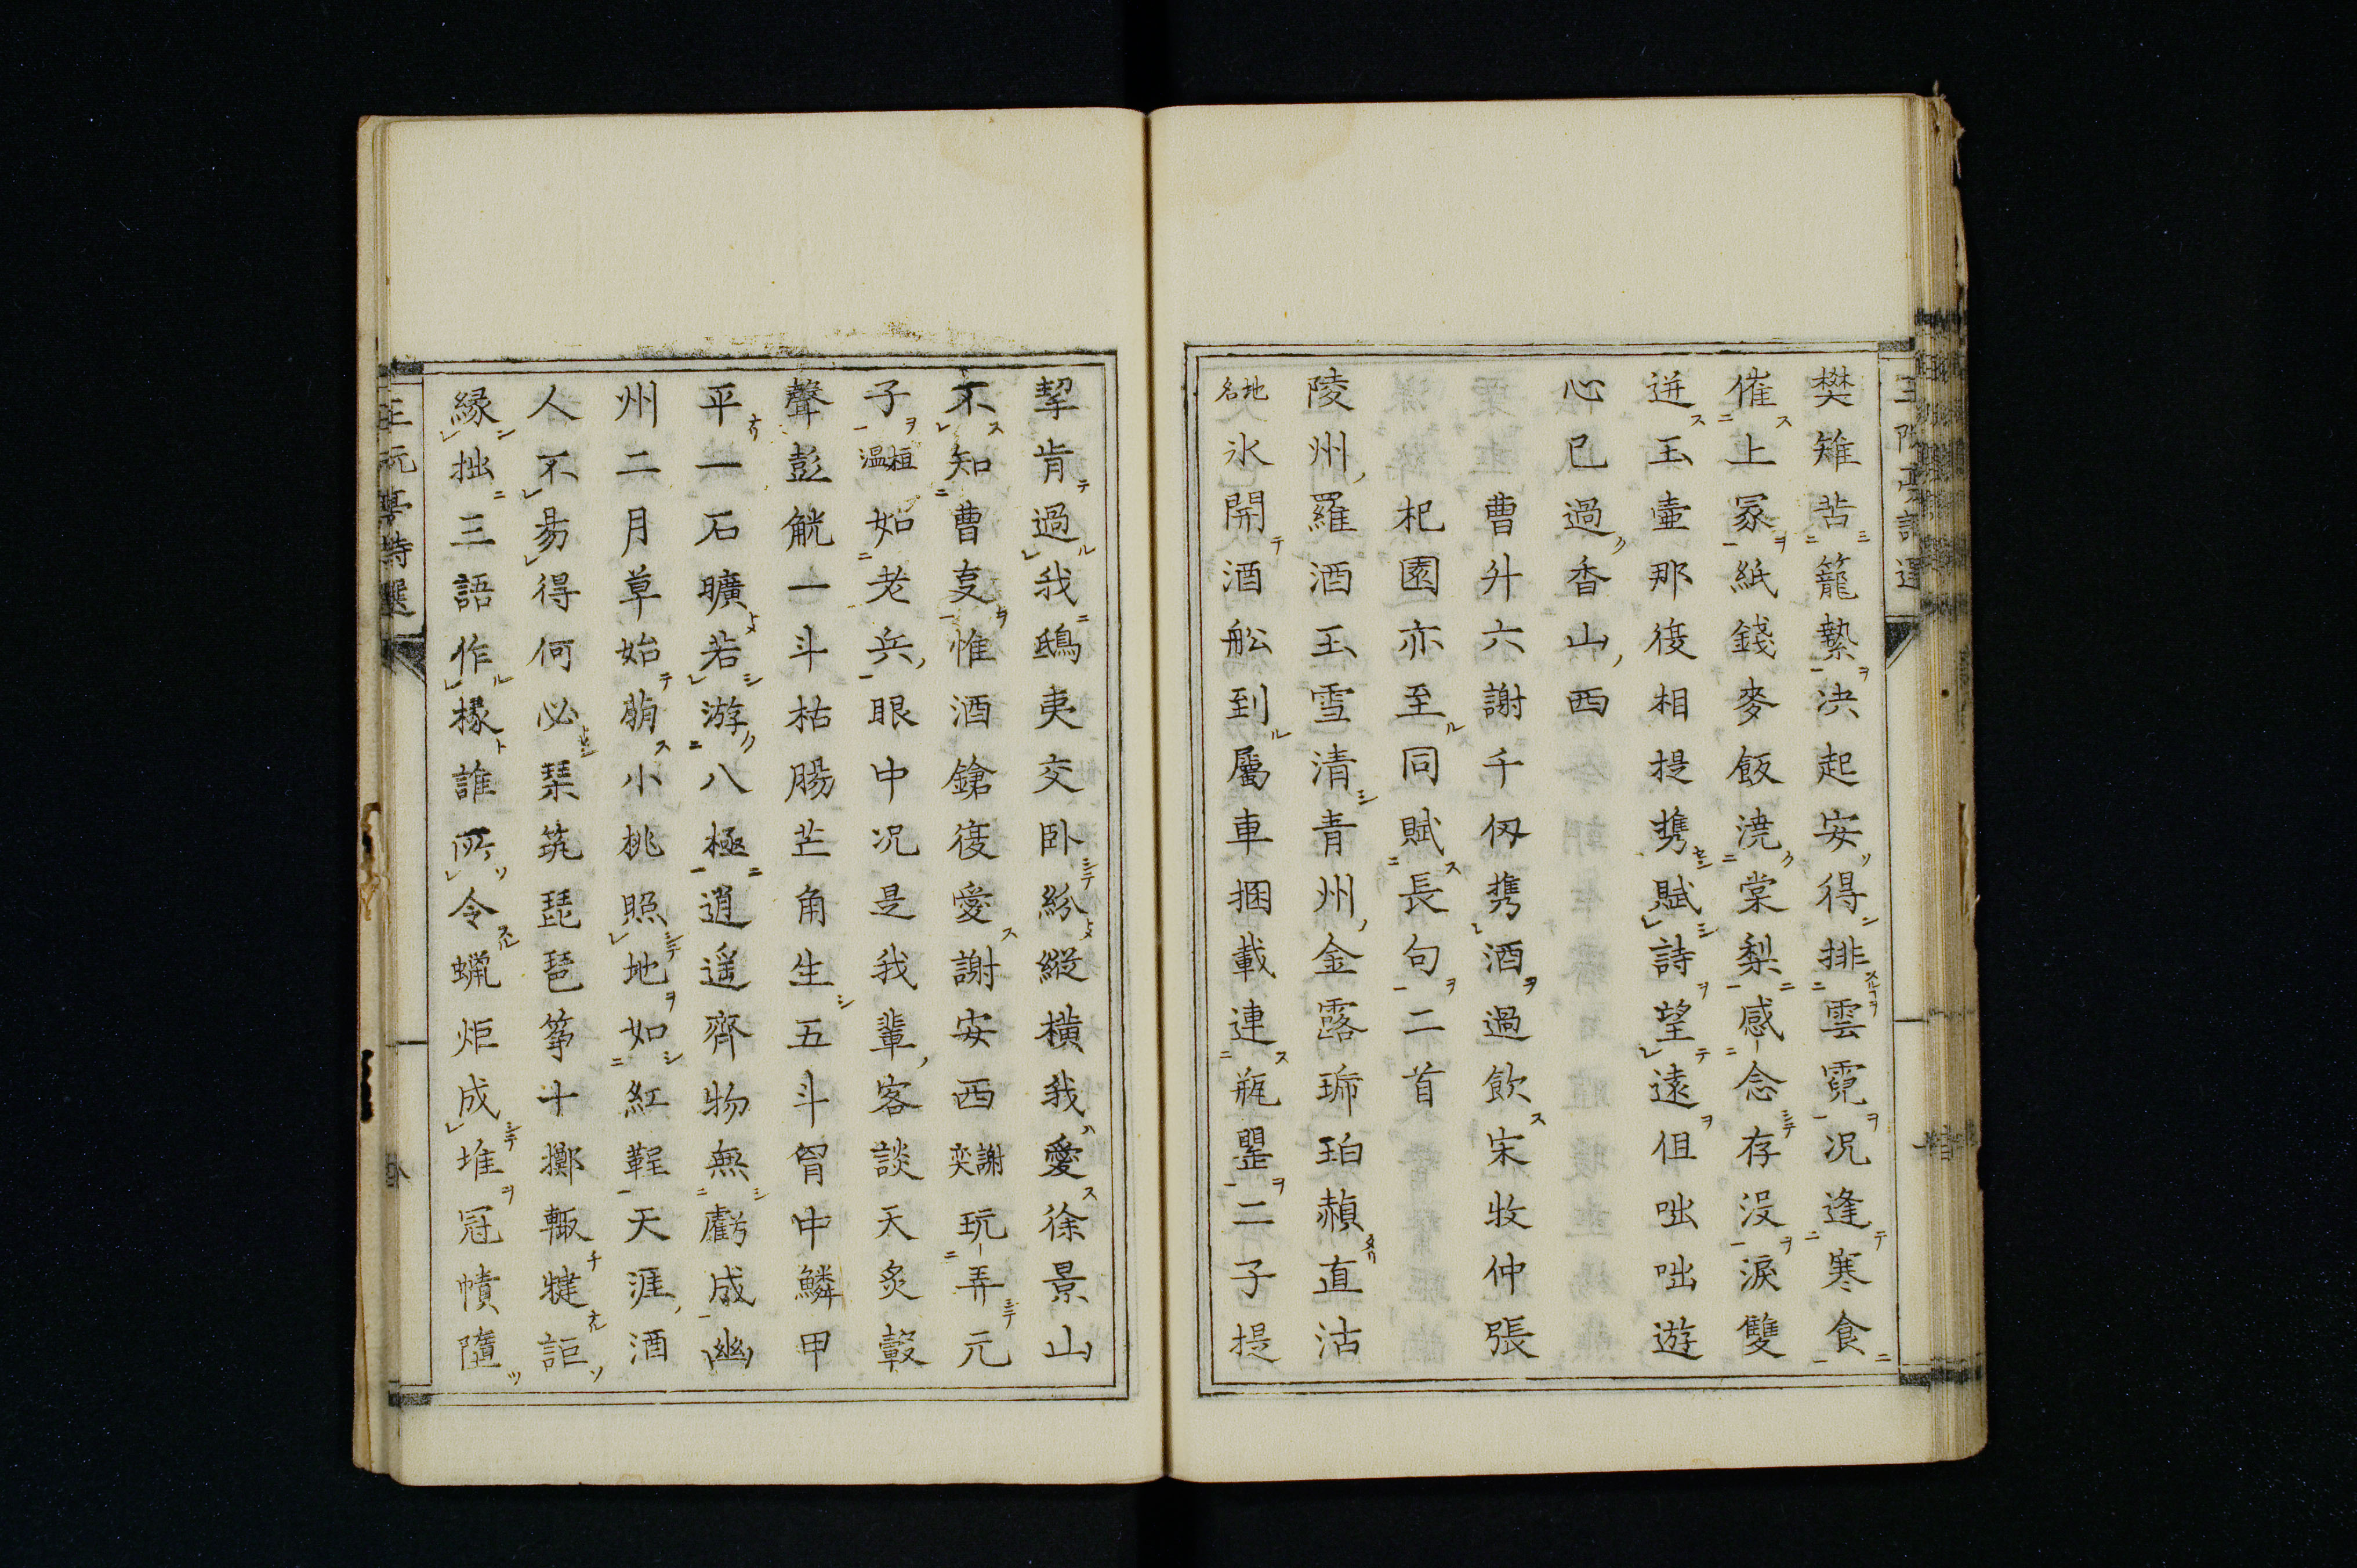 樊雉苦籠縶決起安得排雲霓况逢寒食
催上冢紙錢麥飯澆棠梨感念存沒淚雙
迸玉壷那復相提携賦詩望遠但咄咄遊
心已過香山西
曹升六謝千仭携酒過飲宋牧仲張
杞園亦至同賦長句二首
陵州羅酒玉雪清青州金露琗珀赬直沽
地名氷開酒舩到屬車捆載連瓶罌二子提
挈肯過我鴟夷交卧紛縱横我愛徐景山
不知曹事惟酒鎗復愛謝安西謝奕玩弄元
子桓温如老兵眼中况是我輩客談天炙轂
聲彭觥一斗枯腸芒角生五斗胷中鱗甲
平一石曠若游八極逍遥齊物無虧成幽
州二月草始萠小桃照地如紅鞓天涯酒
人不易得何必琹筑琵琶筝斗擲輙犍詎
緣拙三語作掾誰所令蠟炬成堆冠幘隨
王阮亭詩選